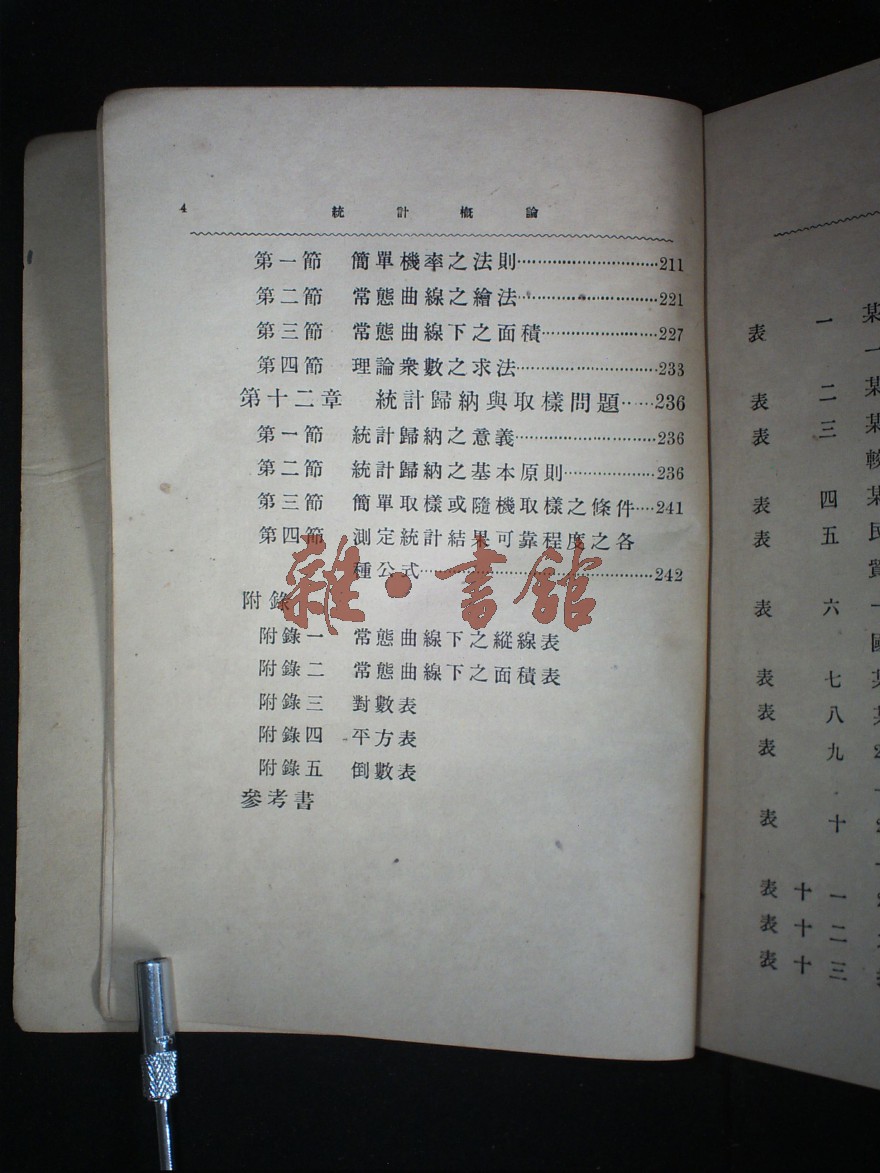 4 統計概論
第一節 簡單機率之法則……211
第二節 常態曲線之繪法……221
第三節 常態曲線下之面積……227
第四節 理論衆數之求法……233
第十二章 統計歸納與取樣問題……236
第一節 統計歸納之意義……236
第二節 統計歸納之基本原則……236
第三節 簡單取樣或隨機取樣之條件……241
第四節 測定統計結果可靠程度之各
種公式……242
附錄
附錄一 常態曲線下之縱線表
附錄二 常態曲線下之面積表
附錄三 對數表
附錄四 平方表
附錄五 倒數表
參考書
雜·書館
表一 某
一
表二 某
表三 某
較
表四 某
表五 民
貨
表六 一
國
表七 某
表八
表九
表十
表十一
表十二
表十三